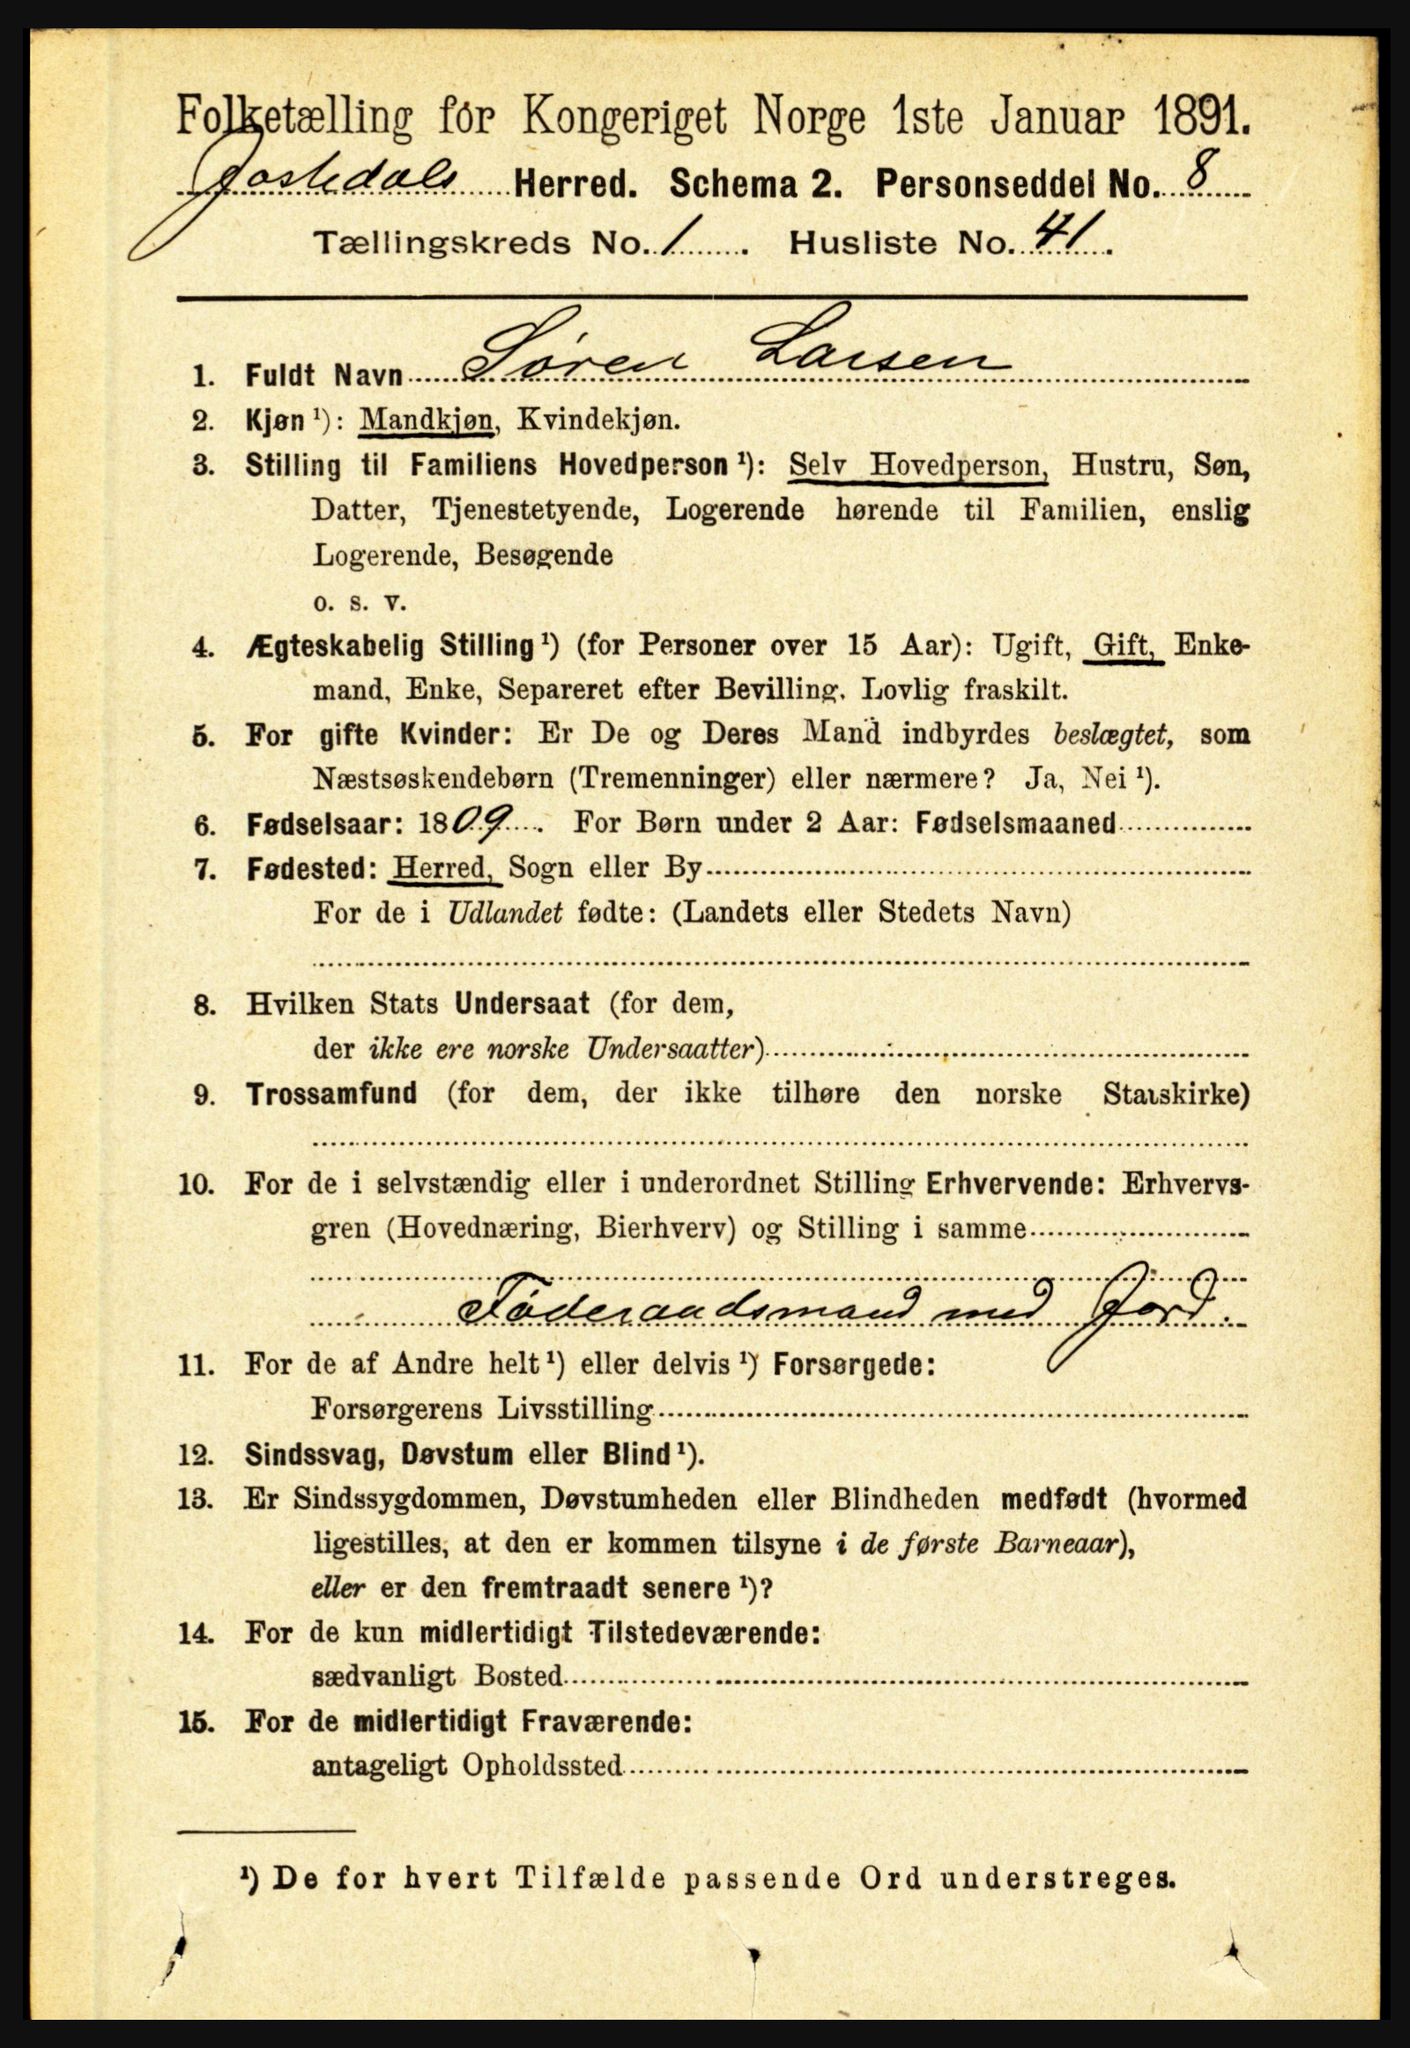 Folketælling for Kongeriget Norge 1ste Januar 1891.
Jostedals Herred. Schema 2. Personseddel No. 8
Tællingskreds No. 1. Husliste No. 41.
1. Fuldt Navn Søren Larsen
2. Kjøn ¹): Mandkjøn, Kvindekjøn.
3. Stilling til Familiens Hovedperson ¹): Selv Hovedperson, Hustru, Søn,
Datter, Tjenestetyende, Logerende hørende til Familien, enslig
Logerende, Besøgende
o. s. v.
4. Ægteskabelig Stilling ¹) (for Personer over 15 Aar): Ugift, Gift, Enke-
mand, Enke, Separeret efter Bevilling. Lovlig fraskilt.
5. For gifte Kvinder: Er De og Deres Mand indbyrdes beslægtet, som
Næstsøskendebørn (Tremenninger) eller nærmere? Ja, Nei ¹).
6. Fødselsaar: 1809. For Børn under 2 Aar: Fødselsmaaned
7. Fødested: Herred, Sogn eller By
For de i Udlandet fødte: (Landets eller Stedets Navn)
8. Hvilken Stats Undersaat (for dem,
der ikke ere norske Undersaatter)
9. Trossamfund (for dem, der ikke tilhøre den norske Statskirke)
10. For de i selvstændig eller i underordnet Stilling Erhvervende: Erhvervs-
gren (Hovednæring, Bierhverv) og Stilling i samme
Föderaadsmand med Jord.
11. For de af Andre helt ¹) eller delvis ¹) Forsørgede:
Forsørgerens Livsstilling
12. Sindssvag, Døvstum eller Blind ¹).
13. Er Sindssygdommen, Døvstumheden eller Blindheden medfødt (hvormed
ligestilles, at den er kommen tilsyne i de første Barneaar),
eller er den fremtraadt senere ¹)?
14. For de kun midlertidigt Tilstedeværende:
sædvanligt Bosted
15. For de midlertidigt Fraværende:
antageligt Opholdssted
¹) De for hvert Tilfælde passende Ord understreges.